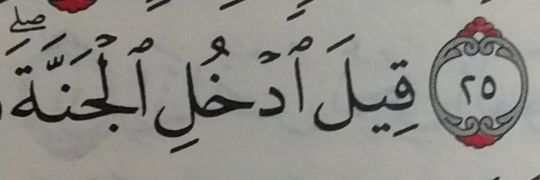 ٢٥ قِيلَ ٱدْخُلِ ٱلْجَنَّةَ ۖ